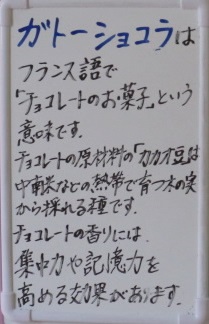 ガトーショコラは
フランス語で
「チョコレートのお菓子」という
意味です.
チョコレートの原材料の「カカオ豆は
中南米などの熱帯で育つ木の実
から採れる種です.
チョコレートの香りには
集中力や記憶力を
高める効果があります.